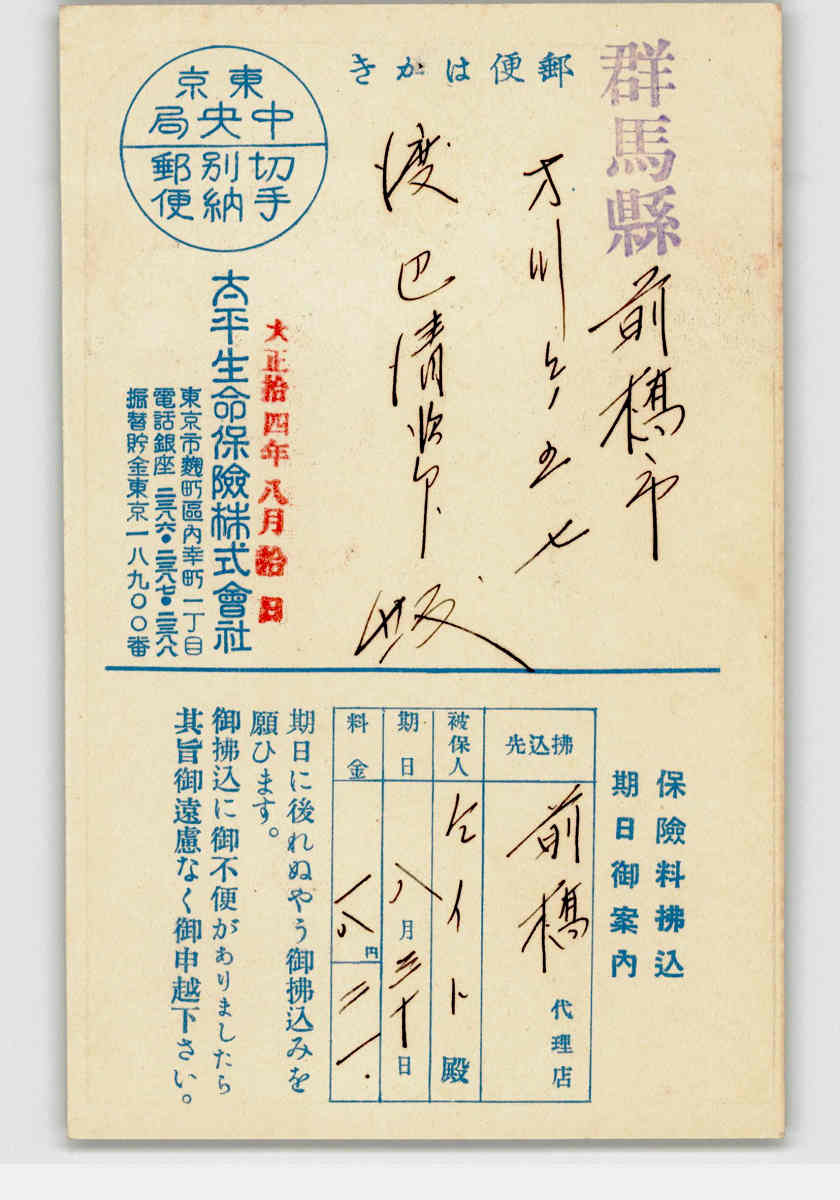 郵便はかき
群馬縣 前橋市
才川町五七
渡辺清次郎 殿
東京
中央局
切手
別納
郵便
大正拾四年八月拾日
太平生命保險株式會社
東京市麴町區內幸町一丁目
電話銀座二三八六・二三八七・二三八八
振替貯金東京一八九〇〇番
保險料拂込
期日御案內
拂込先 前橋 代理店
被保人 ケイト 殿
期日 八月三十日
料金 一八円二一
期日に後れぬやう御拂込みを
願ひます。
御拂込に御不便がありましたら
其旨御遠慮なく御申越下さい。